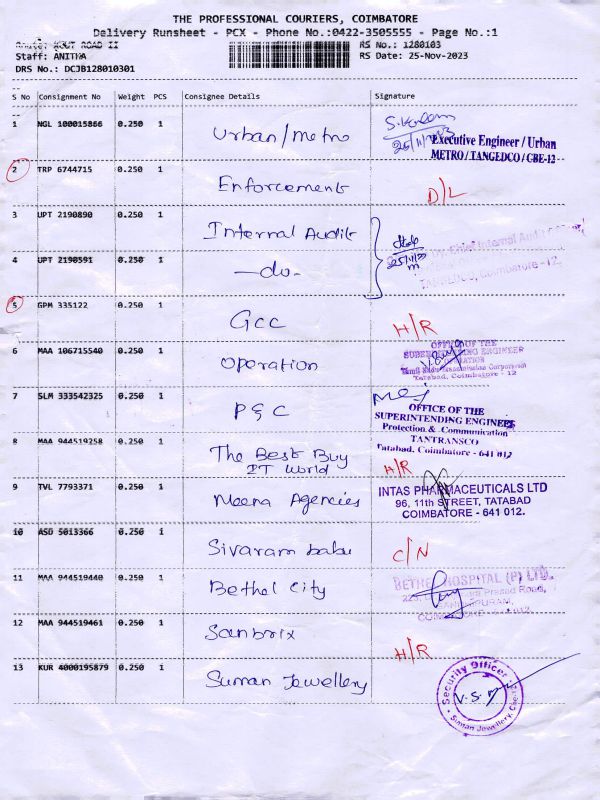 THE PROFESSIONAL COURIERS, COIMBATORE
Delivery Runsheet - PCX - Phone No.:0422-3505555 - Page No.:1
ROAD II
RS No.: 1280103
Staff: ANITHA
RS Date: 25-Nov-2023
DRS No.: DCJB128010301
S No Consignment No Weight PCS Consignee Details Signature
1 NGL 100015866 0.250 1 Urban/Metro
25/11/23
Executive Engineer / Urban
METRO / TANGEDCO / CBE-12
2 TRP 6744715 0.250 1 Enforcement D/L
3 UPT 2190890 0.250 1 Internal Audit
Chief Internal Audit
Coimbatore - 12
4 UPT 2190591 0.250 1 —do—
5 GPM 335122 0.250 1 GCC H/R
6 MAA 106715540 0.250 1 Operation
OFFICE OF THE
SUPERINTENDING ENGINEER
OPERATION
Tatabad, Coimbatore - 12
7 SLM 333542325 0.250 1 P&C
OFFICE OF THE
SUPERINTENDING ENGINEER
Protection & Communication
TANTRANSCO
Tatabad, Coimbatore - 641 012
8 MAA 944519258 0.250 1 The Best Buy
IT World H/R
9 TVL 7793371 0.250 1 Meena Agencies
INTAS PHARMACEUTICALS LTD
96, 11th STREET, TATABAD
COIMBATORE - 641 012.
10 ASD 5013366 0.250 1 Sivaram babu C/N
11 MAA 944519440 0.250 1 Bethel City
BETHEL HOSPITAL (P) LTD.
Prasad Road,
12 MAA 944519461 0.250 1 Sanbrix H/R
13 KUR 4000195879 0.250 1 Suman Jewellery
Security Officer
V.S.
Suman Jewellery, Cbe